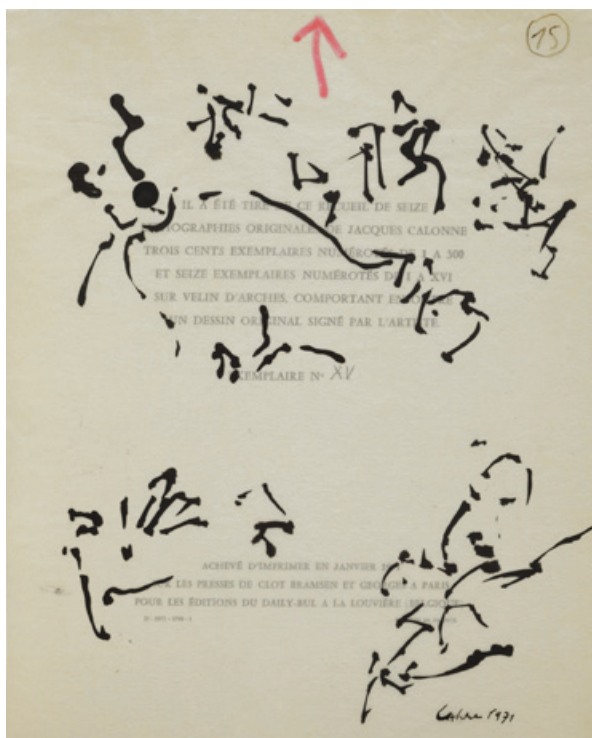 15
IL A ÉTÉ TIRÉ DE CE RECUEIL DE SEIZE
LITHOGRAPHIES ORIGINALES DE JACQUES CALONNE
TROIS CENTS EXEMPLAIRES NUMÉROTÉS DE I A 300
ET SEIZE EXEMPLAIRES NUMÉROTÉS DE I A XVI
SUR VELIN D'ARCHES, COMPORTANT EN OUTRE
UN DESSIN ORIGINAL SIGNÉ PAR L'ARTISTE.
EXEMPLAIRE No XV
ACHEVÉ D'IMPRIMER EN JANVIER
SUR LES PRESSES DE CLOT BRAMSEN ET GEORGES A PARIS
POUR LES ÉDITIONS DU DAILY-BUL A LA LOUVIÈRE (BELGIQUE
1971